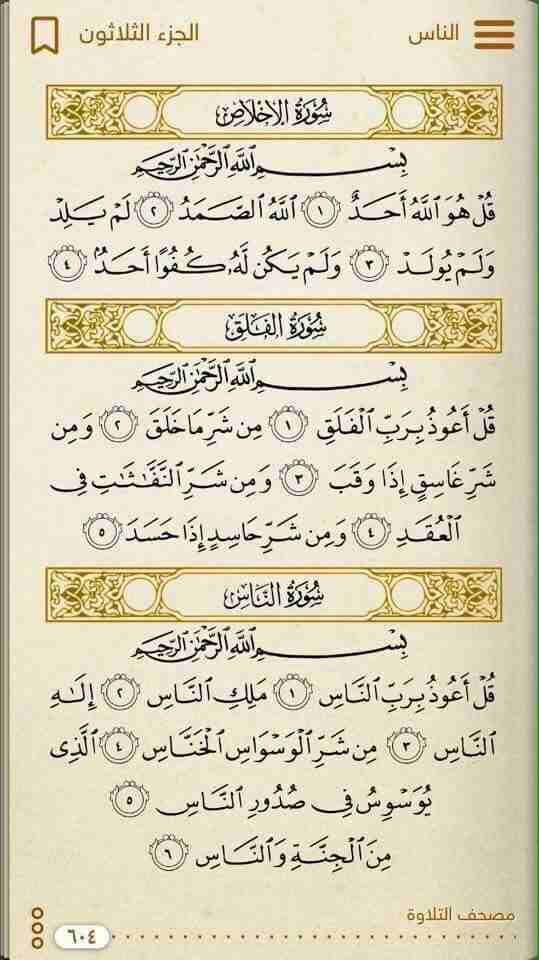 الناس
الجزء الثلاثون
سُورَةُ الإِخْلَاصِ
بِسْمِ اللَّهِ الرَّحْمَٰنِ الرَّحِيمِ
قُلْ هُوَ اللَّهُ أَحَدٌ ١ اللَّهُ الصَّمَدُ ٢ لَمْ يَلِدْ
وَلَمْ يُولَدْ ٣ وَلَمْ يَكُن لَّهُۥ كُفُوًا أَحَدٌۢ ٤
سُورَةُ الفَلَقِ
بِسْمِ اللَّهِ الرَّحْمَٰنِ الرَّحِيمِ
قُلْ أَعُوذُ بِرَبِّ الْفَلَقِ ١ مِن شَرِّ مَا خَلَقَ ٢ وَمِن
شَرِّ غَاسِقٍ إِذَا وَقَبَ ٣ وَمِن شَرِّ النَّفَّٰثَٰتِ فِي
الْعُقَدِ ٤ وَمِن شَرِّ حَاسِدٍ إِذَا حَسَدَ ٥
سُورَةُ النَّاسِ
بِسْمِ اللَّهِ الرَّحْمَٰنِ الرَّحِيمِ
قُلْ أَعُوذُ بِرَبِّ النَّاسِ ١ مَلِكِ النَّاسِ ٢ إِلَٰهِ
النَّاسِ ٣ مِن شَرِّ الْوَسْوَاسِ الْخَنَّاسِ ٤ الَّذِي
يُوَسْوِسُ فِي صُدُورِ النَّاسِ ٥
مِنَ الْجِنَّةِ وَالنَّاسِ ٦
مصحف التلاوة
٦٠٤